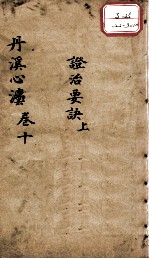 證治要訣上
丹溪心灋卷十